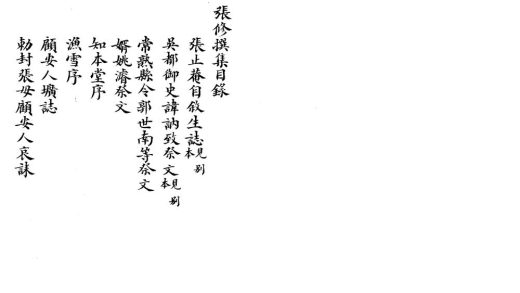 張修撰集目錄
張止菴自敘生誌見別本
吳都御史諱訥致祭文見別本
常熟縣令郭世南等祭文
婿姚濬祭文
知本堂序
漁雪序
顧安人壙誌
勅封張母顧安人哀誄